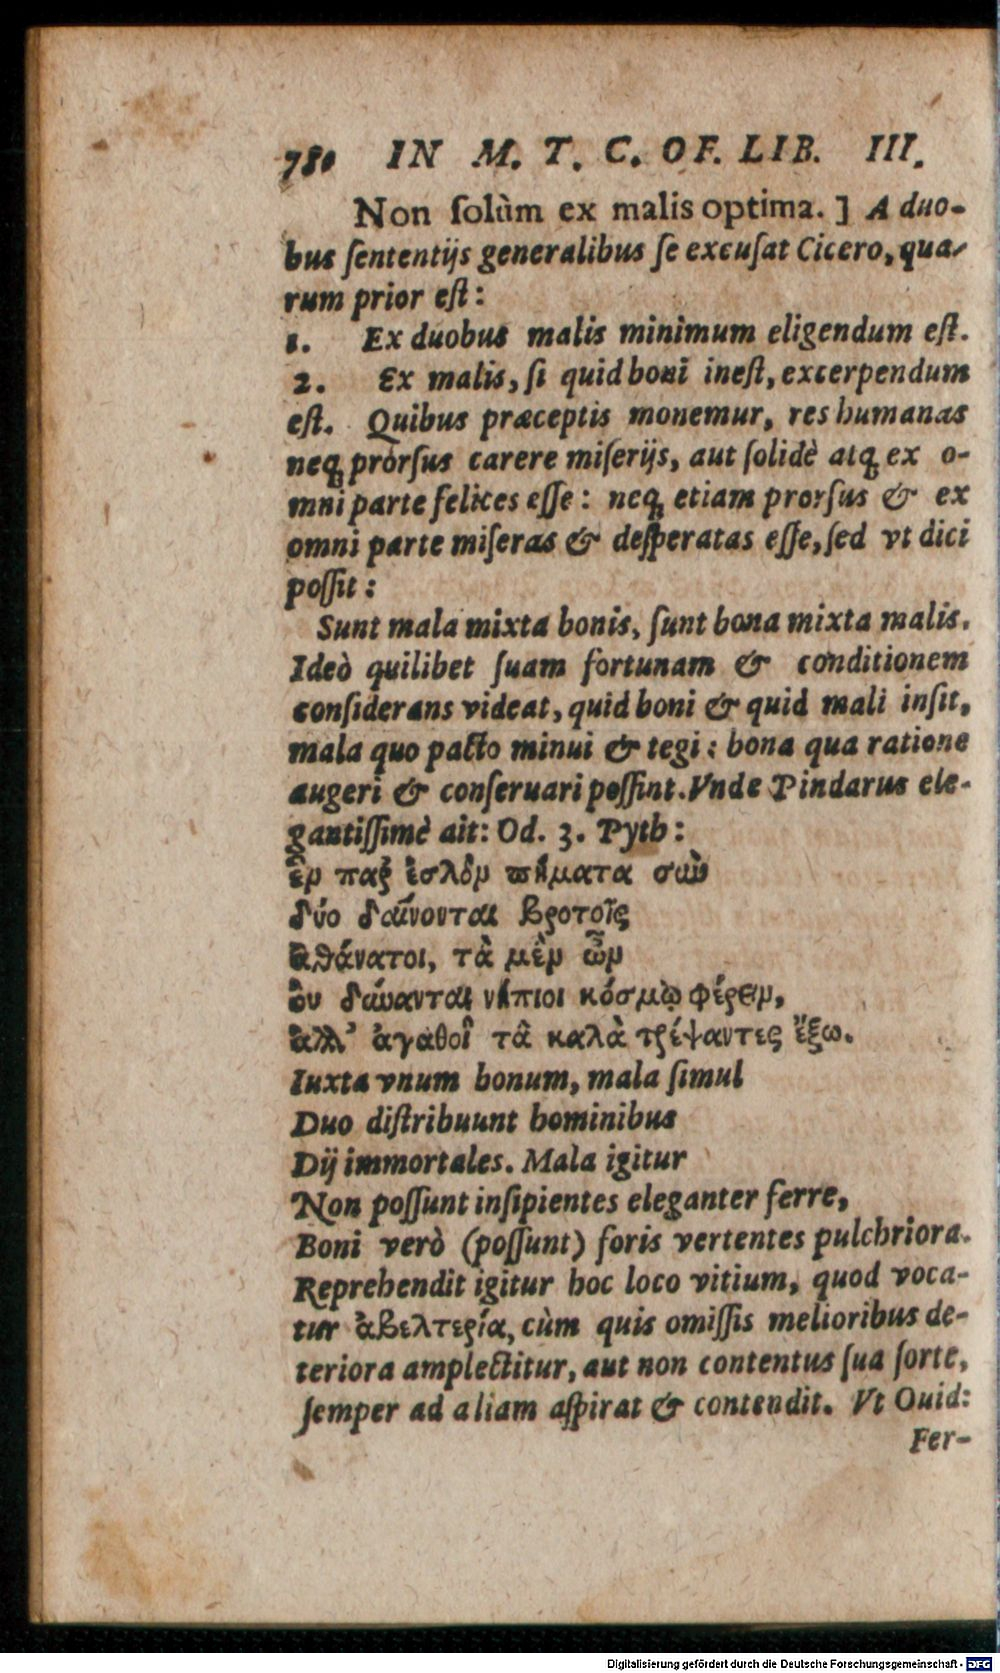 780 IN M. T. C. OF. LIB. III.
Non ſolùm ex malis optima. ] A duo-
bus ſententijs generalibus ſe excuſat Cicero, qua-
rum prior eſt:
1. Ex duobus malis minimum eligendum eſt.
2. Ex malis, ſi quid boni ineſt, excerpendum
eſt. Quibus præceptis monemur, res humanas
neq; prorſus carere miſerijs, aut ſolidè atq; ex o-
mni parte felices eſſe: neq; etiam prorſus & ex
omni parte miſeras & deſperatas eſſe, ſed vt dici
poſſit:
Sunt mala mixta bonis, ſunt bona mixta malis.
Ideò quilibet ſuam fortunam & conditionem
conſiderans videat, quid boni & quid mali inſit,
mala quo pacto minui & tegi: bona qua ratione
augeri & conſeruari poſſint. Vnde Pindarus ele-
gantiſſimè ait: Od. 3. Pyth:
ἓν παρ ἐσλὸν πήματα σὺν
δύο δαίνονται βροτοῖς
ἀθάνατοι, τὰ μὲν ὦν
ὀυ δύνανται νήπιοι κόσμῳ φέρειν,
ἀλλ' ἀγαθοὶ τὰ καλὰ τρέψαντες ἔξω.
Iuxta vnum bonum, mala ſimul
Duo diſtribuunt hominibus
Dij immortales. Mala igitur
Non poſſunt inſipientes eleganter ferre,
Boni verò (poſſunt) foris vertentes pulchriora.
Reprehendit igitur hoc loco vitium, quod voca-
tur ἀβελτερία, cùm quis omiſſis melioribus de-
teriora amplectitur, aut non contentus ſua ſorte,
ſemper ad aliam aſpirat & contendit. Vt Ouid:
Fer-
Digitalisierung gefördert durch die Deutsche Forschungsgemeinschaft - DFG